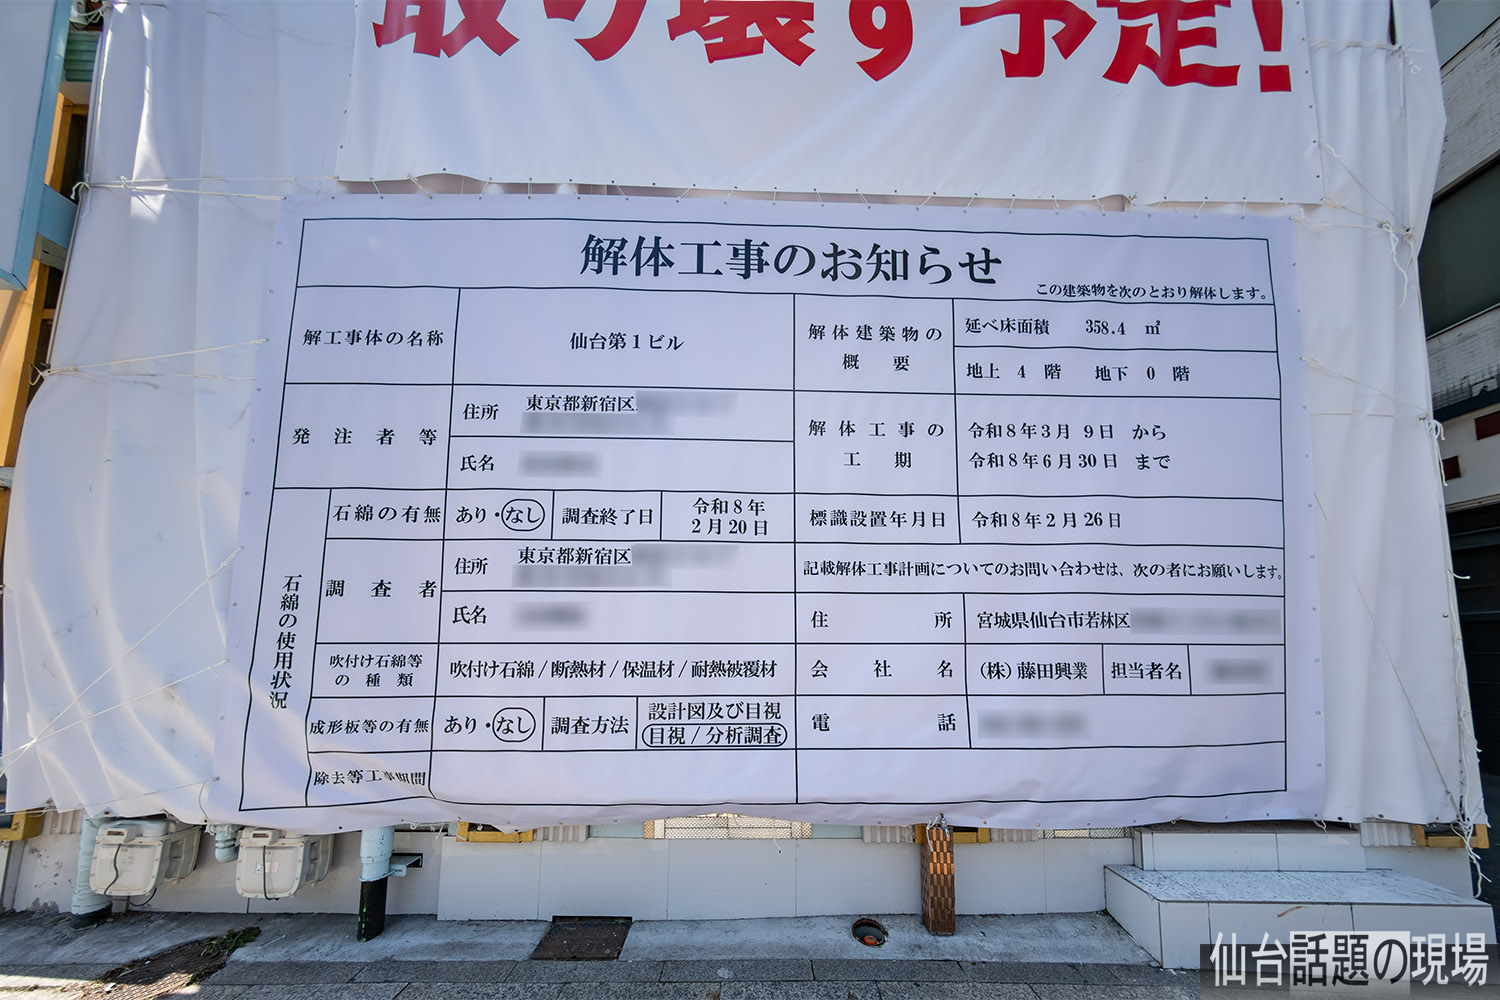 取り壊す予定!
解体工事のお知らせ
この建築物を次のとおり解体します。
解工事体の名称
仙台第1ビル
発注者等
住所
東京都新宿区
氏名
石綿の使用状況
石綿の有無
あり・なし
調査終了日
令和8年
2月20日
調査者
住所
東京都新宿区
氏名
吹付け石綿等
の種類
吹付け石綿/断熱材/保温材/耐熱被覆材
成形板等の有無
あり・なし
調査方法
設計図及び目視
目視/分析調査
除去等工事期間
解体建築物の
概要
延べ床面積 358.4 ㎡
地上 4 階 地下 0 階
解体工事の
工期
令和8年3月 9日 から
令和8年6月30日 まで
標識設置年月日
令和8年2月26日
記載解体工事計画についてのお問い合わせは、次の者にお願いします。
住所
宮城県仙台市若林区
会社名
(株)藤田興業
担当者名
電話
仙台話題の現場